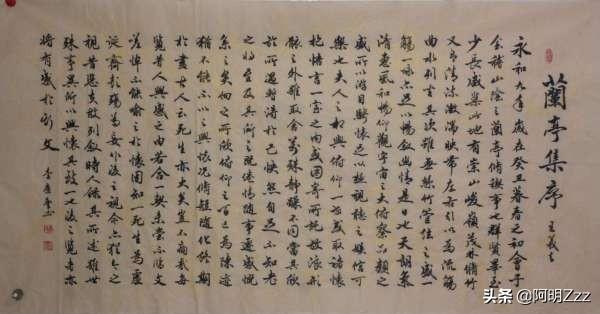 蘭亭集序 王羲之
永和九年歲在癸丑暮春之初會于
會稽山陰之蘭亭脩禊事也群賢畢至
少長咸集此地有崇山峻嶺茂林脩竹
又有清流激湍映帶左右引以為流觴
曲水列坐其次雖無絲竹管弦之盛一
觴一詠亦足以暢敘幽情是日也天朗氣
清惠風和暢仰觀宇宙之大俯察品類之
盛所以遊目騁懷足以極視聽之娛信可
樂也夫人之相與俯仰一世或取諸懷
抱悟言一室之內或因寄所託放浪形
骸之外雖取舍萬殊靜躁不同當其欣
於所遇暫得於己快然自足不知老
之將至及其所之既倦情隨事遷感慨
係之矣向之所欣俯仰之間已為陳迹
猶不能不以之興懷況脩短隨化終期
於盡古人云死生亦大矣豈不痛哉每
覽昔人興感之由若合一契未嘗不臨文
嗟悼不能喻之於懷固知一死生為虛
誕齊彭殤為妄作後之視今亦猶今之
視昔悲夫故列敘時人錄其所述雖世
殊事異所以興懷其致一也後之覽者亦
將有感於斯文
头条 @阿明Zzz